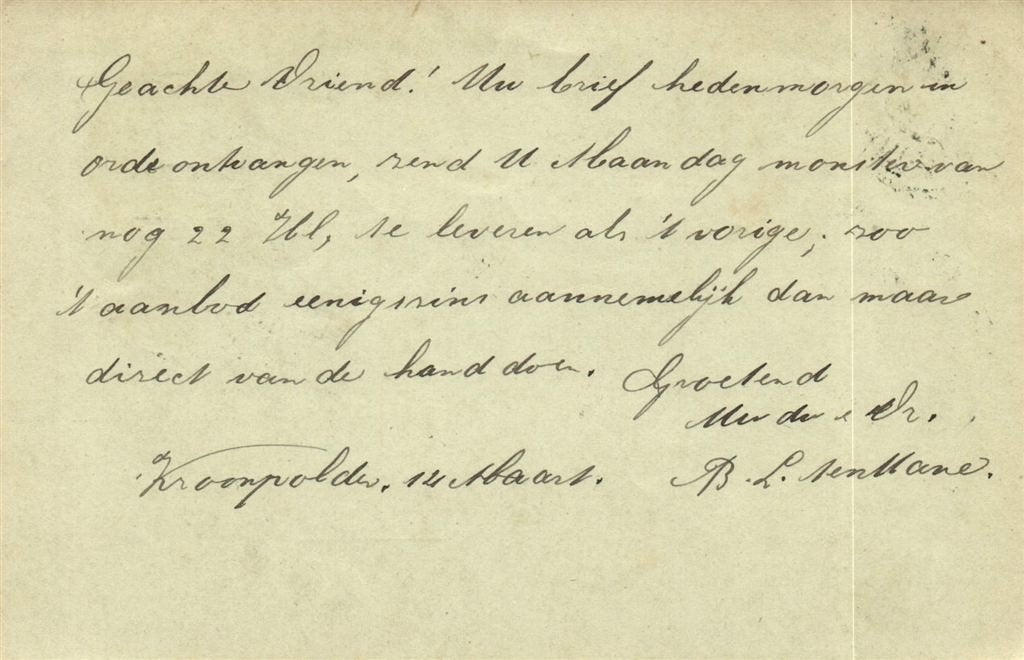 Geachte Vriend! Uw brief hedenmorgen in
orde ontvangen, zend U Maandag monster van
nog 22 Hl, te leveren als 't vorige; zoo
't aanbod eenigszins aannemelijk dan maar
direct van de hand doen. Groetend
Uw dw Vr.
Kroonpolder. 14 Maart. B. L. tenHave.